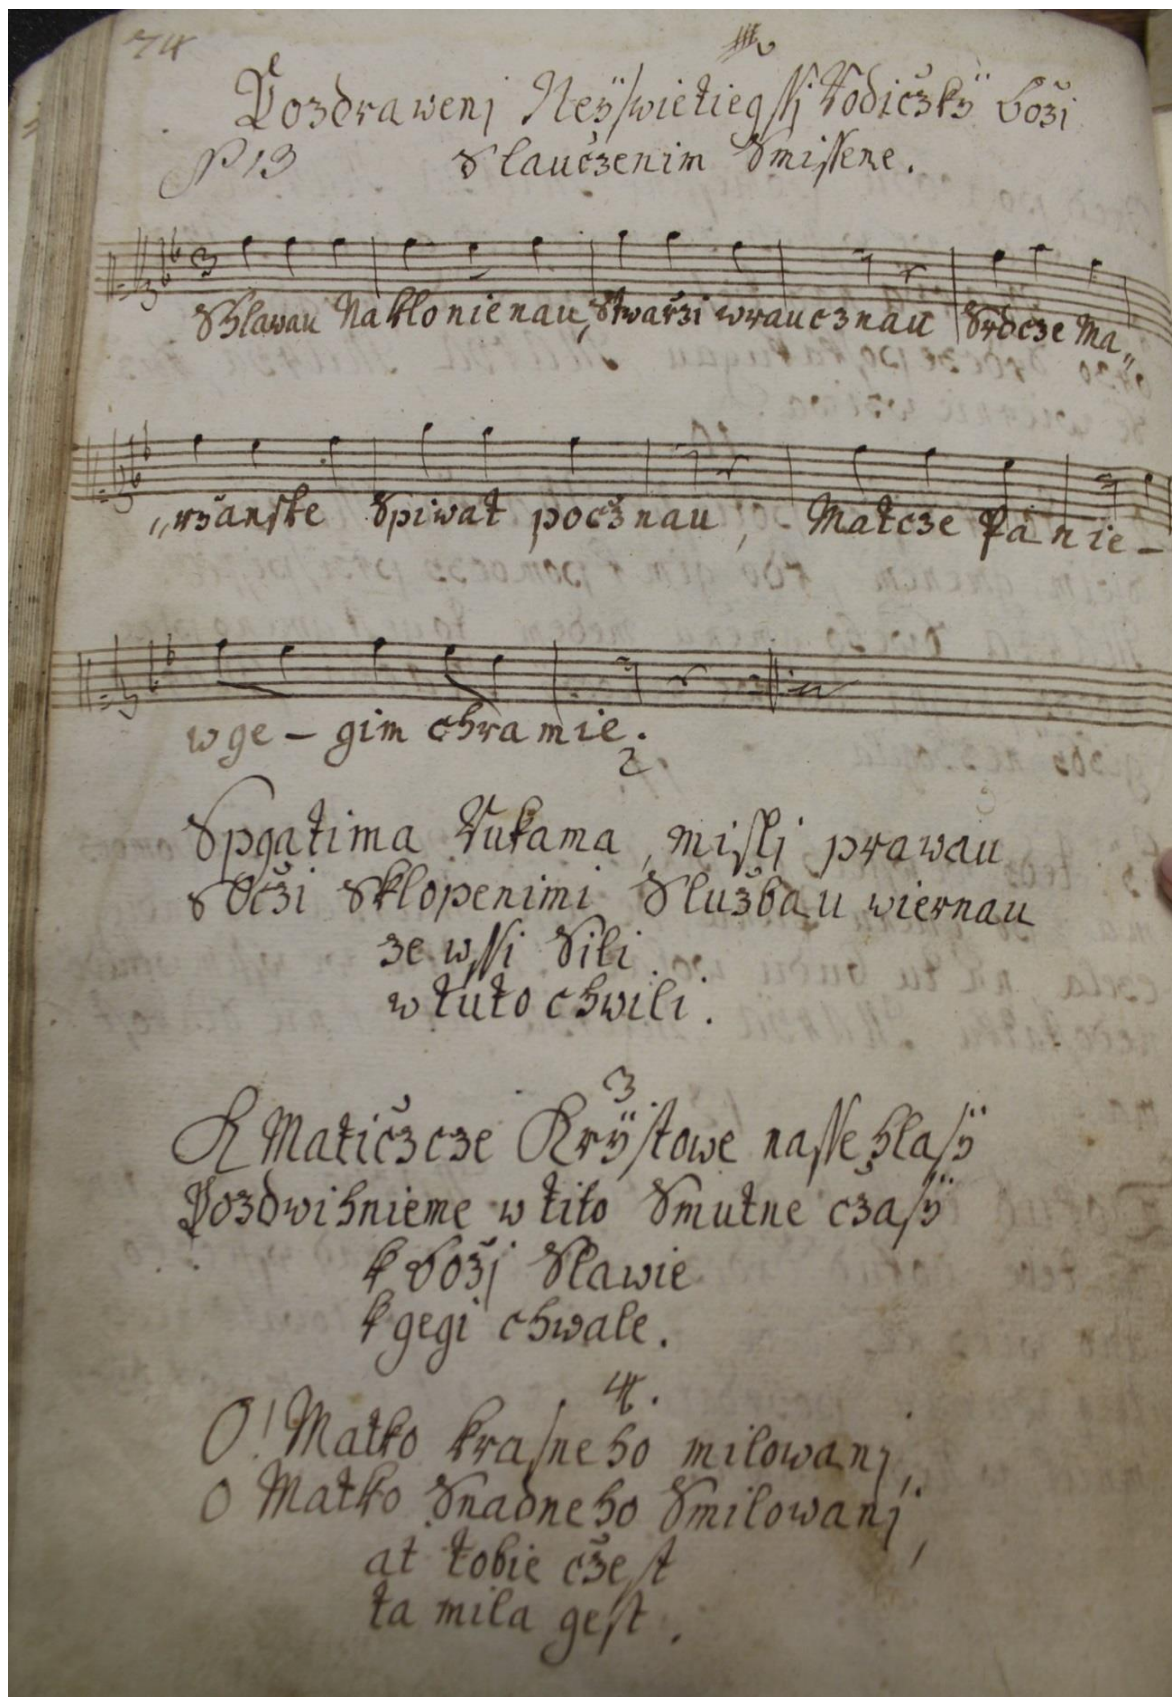 74
Pozdrawenj Neÿswietiegssj Rodiczkÿ Božj
N 13 Slaučzenim Smissene.
S Hlawau Naklonienau, Stwařzi wraucznau Srdcze Ma„
„rzänske Spiwat počznau, Matcze Pánie–
w ge – gim chramie.
2
Spgatima Rukama, mislj prawau
S Očzi Sklopenimi Službau wiernau
ze wssi Sili
w tuto chwili.
3
K Matičzcze Krÿstowe nasse hlasÿ
Pozdwihnieme w tito Smutne čzasÿ
k Božj Slawie
k gegi chwale.
4.
O! Matko krasneho milowanj,
O Matko Snadneho Smilowanj,
at tobie čzest
ta mila gest.